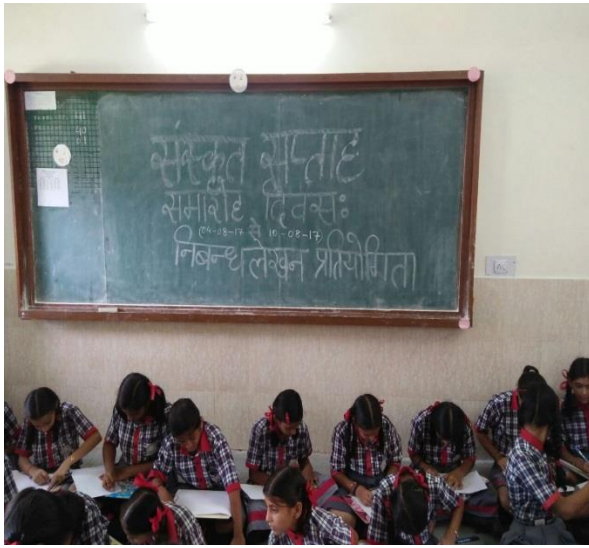 संस्कृत सप्ताह
समारोह दिवसः
(04-08-17 से 10-08-17)
निबन्ध लेखन प्रतियोगिता